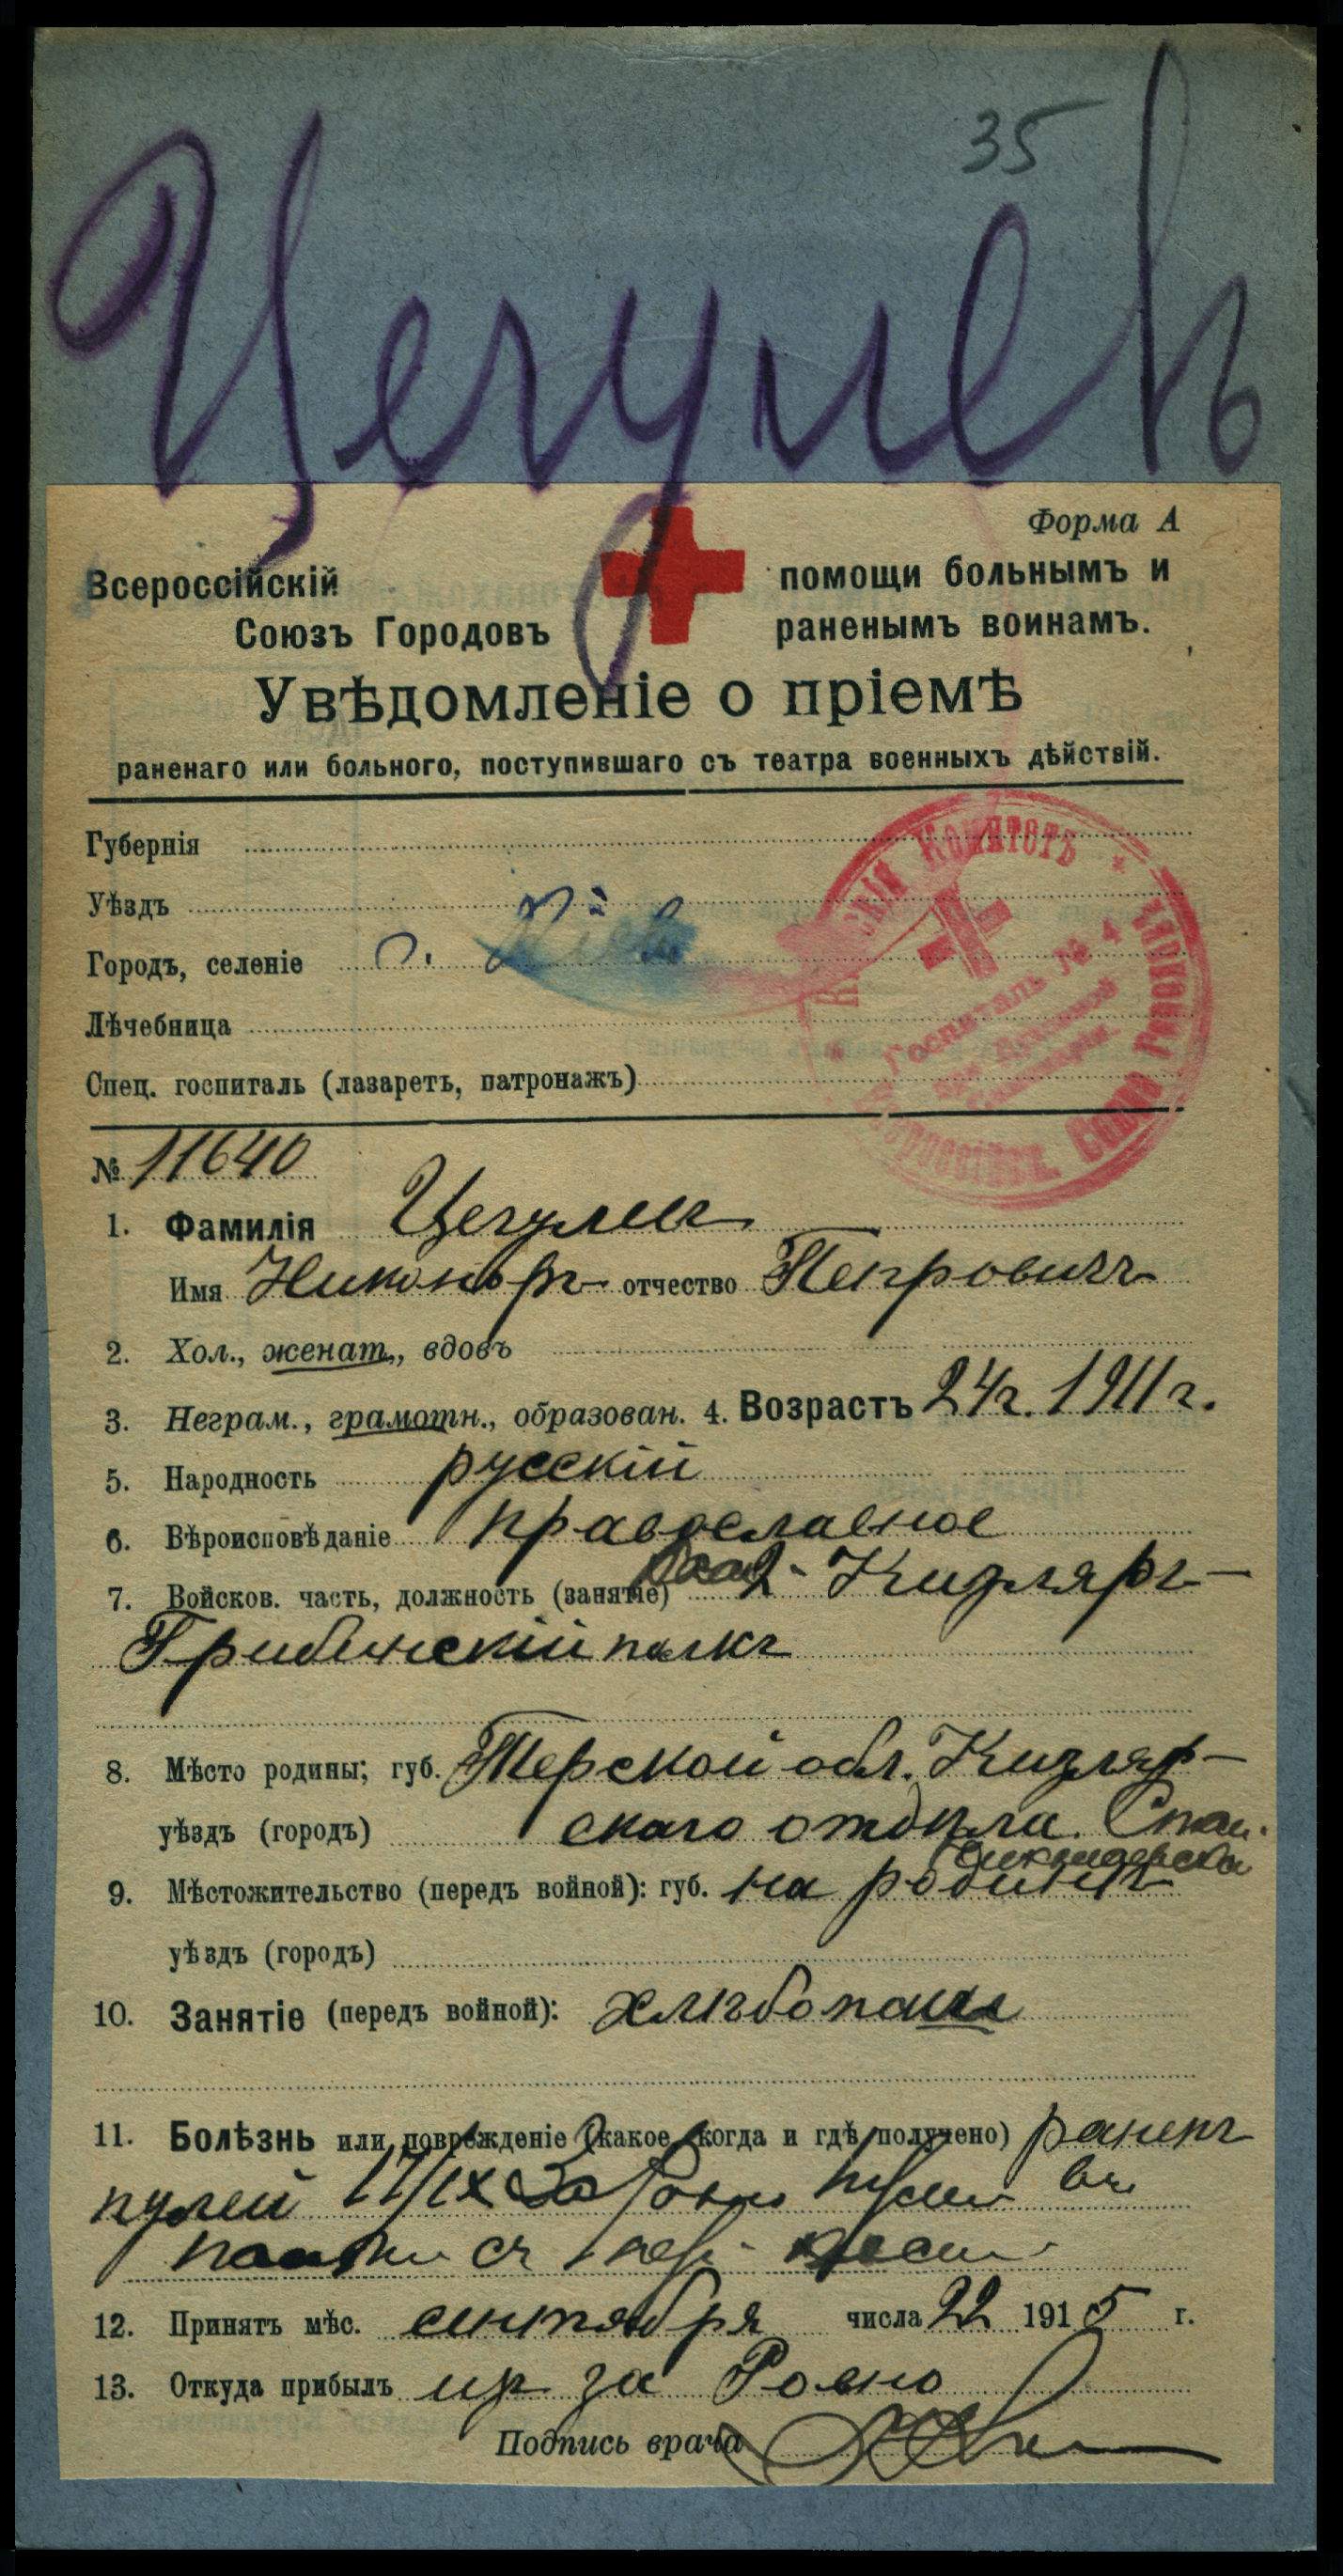 35
Цегулевъ
Форма А
Всероссійскій
Союзъ Городовъ
помощи больнымъ и
раненымъ воинамъ.
Увѣдомленіе о пріемѣ
раненаго или больного, поступившаго съ театра военныхъ дѣйствій.
Губернія
Уѣздъ
Городъ, селеніе г. Кіевъ
Лѣчебница
Спец. госпиталь (лазаретъ, патронажъ)
Комитетъ
Госпиталь № 4
Всероссійск. Союза Городовъ
№ 11640
1. Фамилія
Имя отчество Петровичъ
2. Хол., женат., вдовъ
3. Неграм., грамотн., образован. 4. Возрастъ 24 г. 1911 г.
5. Народность русскій
6. Вѣроисповѣданіе православное
7. Войсков. часть, должность (занятіе) 2- Кизляръ-
Гребенскій полкъ
8. Мѣсто родины; губ. Терской обл. Кизляр-
уѣздъ (городъ) скаго отдѣла. Стан.
9. Мѣстожительство (передъ войной): губ. на родинѣ
уѣздъ (городъ)
10. Занятіе (передъ войной): хлѣбопаш
11. Болѣзнь или поврежденіе (какое, когда и гдѣ получено) раненъ
пулей 17/IX За Ровно въ
12. Принятъ мѣс. сентября числа 22 1915 г.
13. Откуда прибылъ из за Ровно
Подпись врача